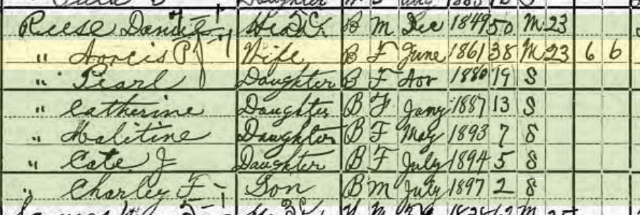 Daughter
Reese Daniel Head B M Dec 1849 50 M 23
" P Wife B F June 1861 38 M 23 6 6
" Pearl Daughter B F Nov 1880 19 S
" Catherine Daughter B F Jany 1887 13 S
" Malitine Daughter B F May 1893 7 S
" Cate J Daughter B F July 1894 5 S
" Charley F Son B M July 1897 2 S